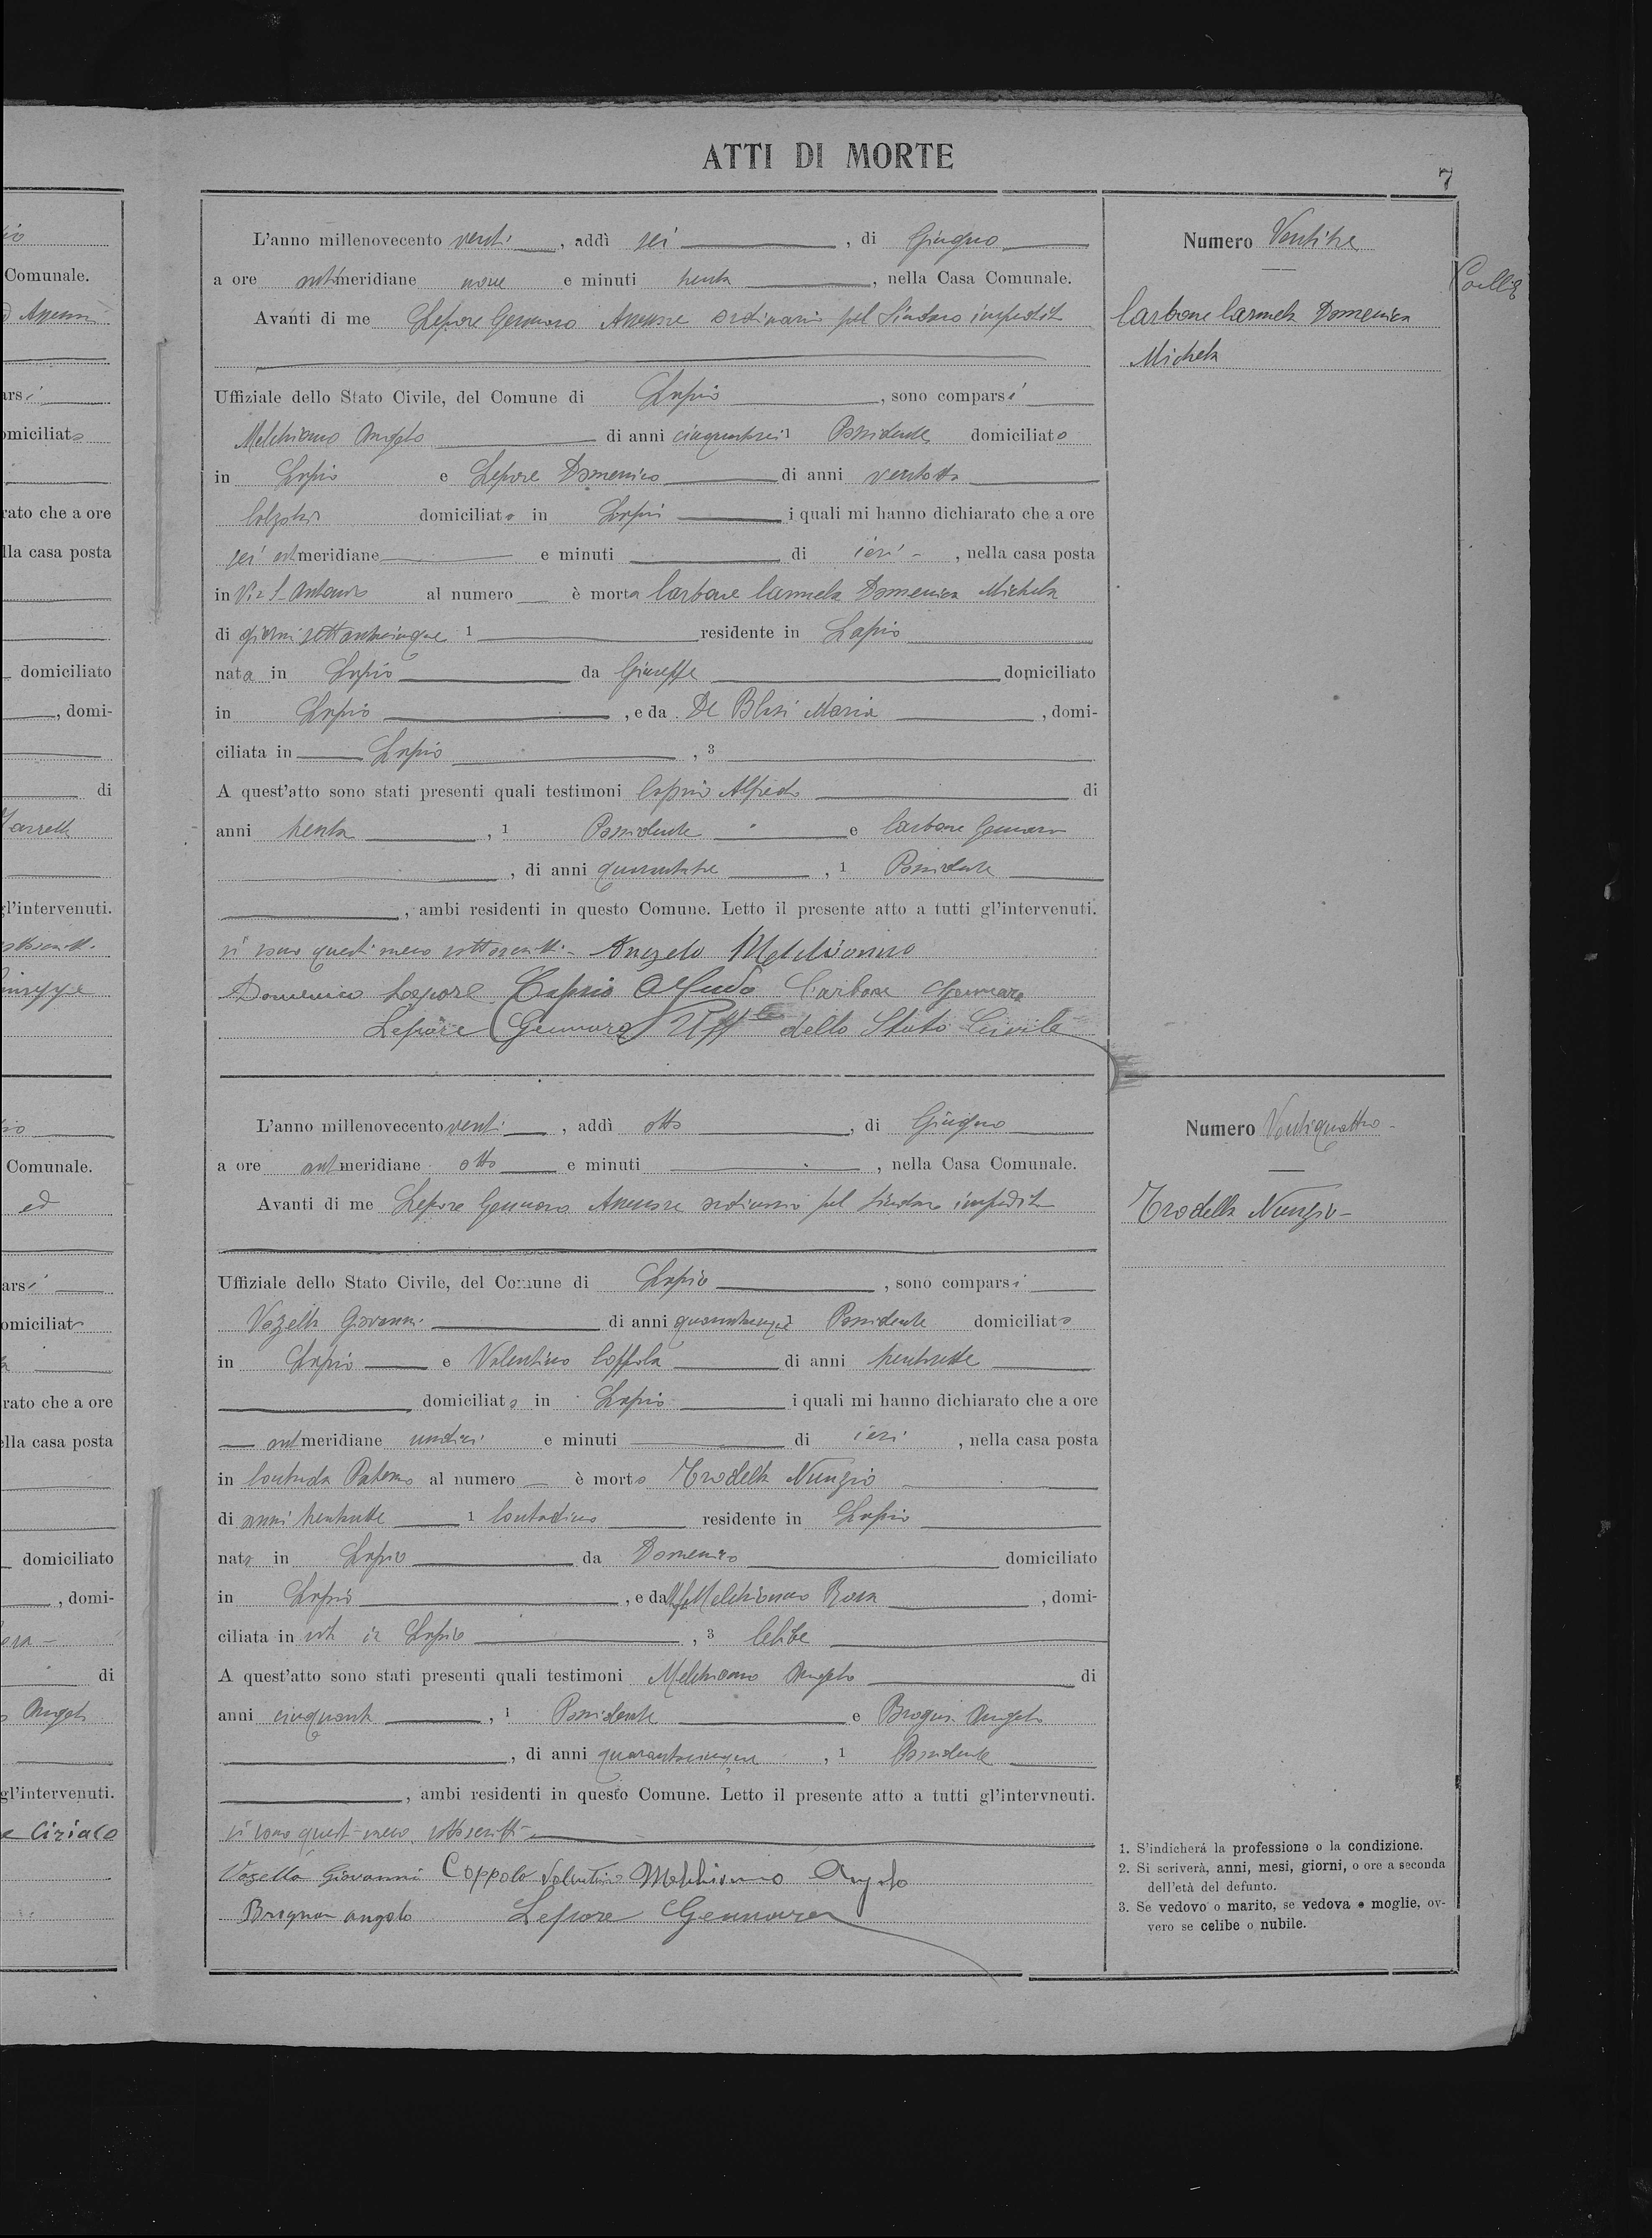 ATTI DI MORTE
7
L'anno millenovecento venti, addì sei, di Giugno
a ore antimeridiane nove e minuti trenta, nella Casa Comunale.
Avanti di me Lepore Gennaro Assessore ordinario pel Sindaco impedito
Uffiziale dello Stato Civile, del Comune di Lapio, sono comparsi
Melchionno Angelo di anni cinquantasei 1 Possidente domiciliato
in Lapio e Lepore Domenico di anni ventotto
Calzolaio domiciliato in Lapio i quali mi hanno dichiarato che a ore
sei antmeridiane e minuti di ieri, nella casa posta
in Via S. Antonio al numero è morta Carbone Carmela Domenica Michela
di giorni settantacinque 1 residente in Lapio
nata in Lapio da Giuseppe domiciliato
in Lapio, e da De Blasi Maria, domi-
ciliata in Lapio, 3
A quest'atto sono stati presenti quali testimoni Caprio Alfredo di
anni trenta, 1 Possidente e Carbone Gennaro
, di anni quarantatre, 1 Possidente
, ambi residenti in questo Comune. Letto il presente atto a tutti gl'intervenuti.
si sono questi meco sottoscritti - Angelo Melchionno
Domenico Lepore Caprio Alfredo Carbone Gennaro
Lepore Gennaro Uffle dello Stato Civile
Numero Ventitre
Carbone Carmela Domenica
Michela
L'anno millenovecento venti, addì otto, di Giugno
a ore antmeridiane otto e minuti, nella Casa Comunale.
Avanti di me Lepore Gennaro Assessore ordinario pel Sindaco impedito
Uffiziale dello Stato Civile, del Comune di Lapio, sono comparsi
Vozella Giovanni di anni Possidente domiciliato
in Lapio e Valentino Coppola di anni trentasette
domiciliato in Lapio i quali mi hanno dichiarato che a ore
antmeridiane undici e minuti di ieri, nella casa posta
in Contrada Paterno al numero è morto Trodella Nunzio
di anni trentasette 1 Contadino residente in Lapio
nato in Lapio da Domenico domiciliato
in Lapio, e da Melchionno Rosa, domi-
ciliata in Lapio, 3 Celibe
A quest'atto sono stati presenti quali testimoni Melchionno Angelo di
anni cinquanta, 1 Possidente e Angelo
, di anni quarantacinque, 1 Possidente
, ambi residenti in questo Comune. Letto il presente atto a tutti gl'intervneuti.
si sono questi meco sottoscritti
Vozella Giovanni Coppola Valentino Melchionno Angelo
Angelo Lepore Gennaro
Numero Ventiquattro
Trodella Nunzio
1. S'indicherá la professione o la condizione.
2. Si scriverà, anni, mesi, giorni, o ore a seconda
dell'età del defunto.
3. Se vedovo o marito, se vedova e moglie, ov-
vero se celibe o nubile.